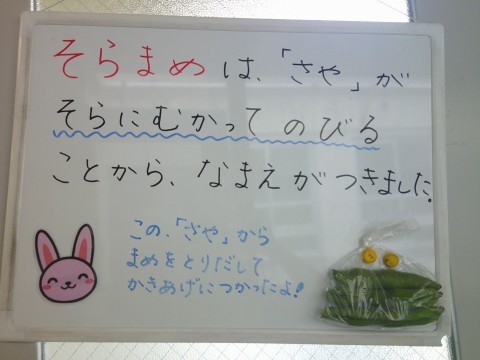 そらまめは、「さや」が
そらにむかってのびる
ことから、なまえがつきました。
この、「さや」から
まめをとりだして
かきあげにつかったよ!